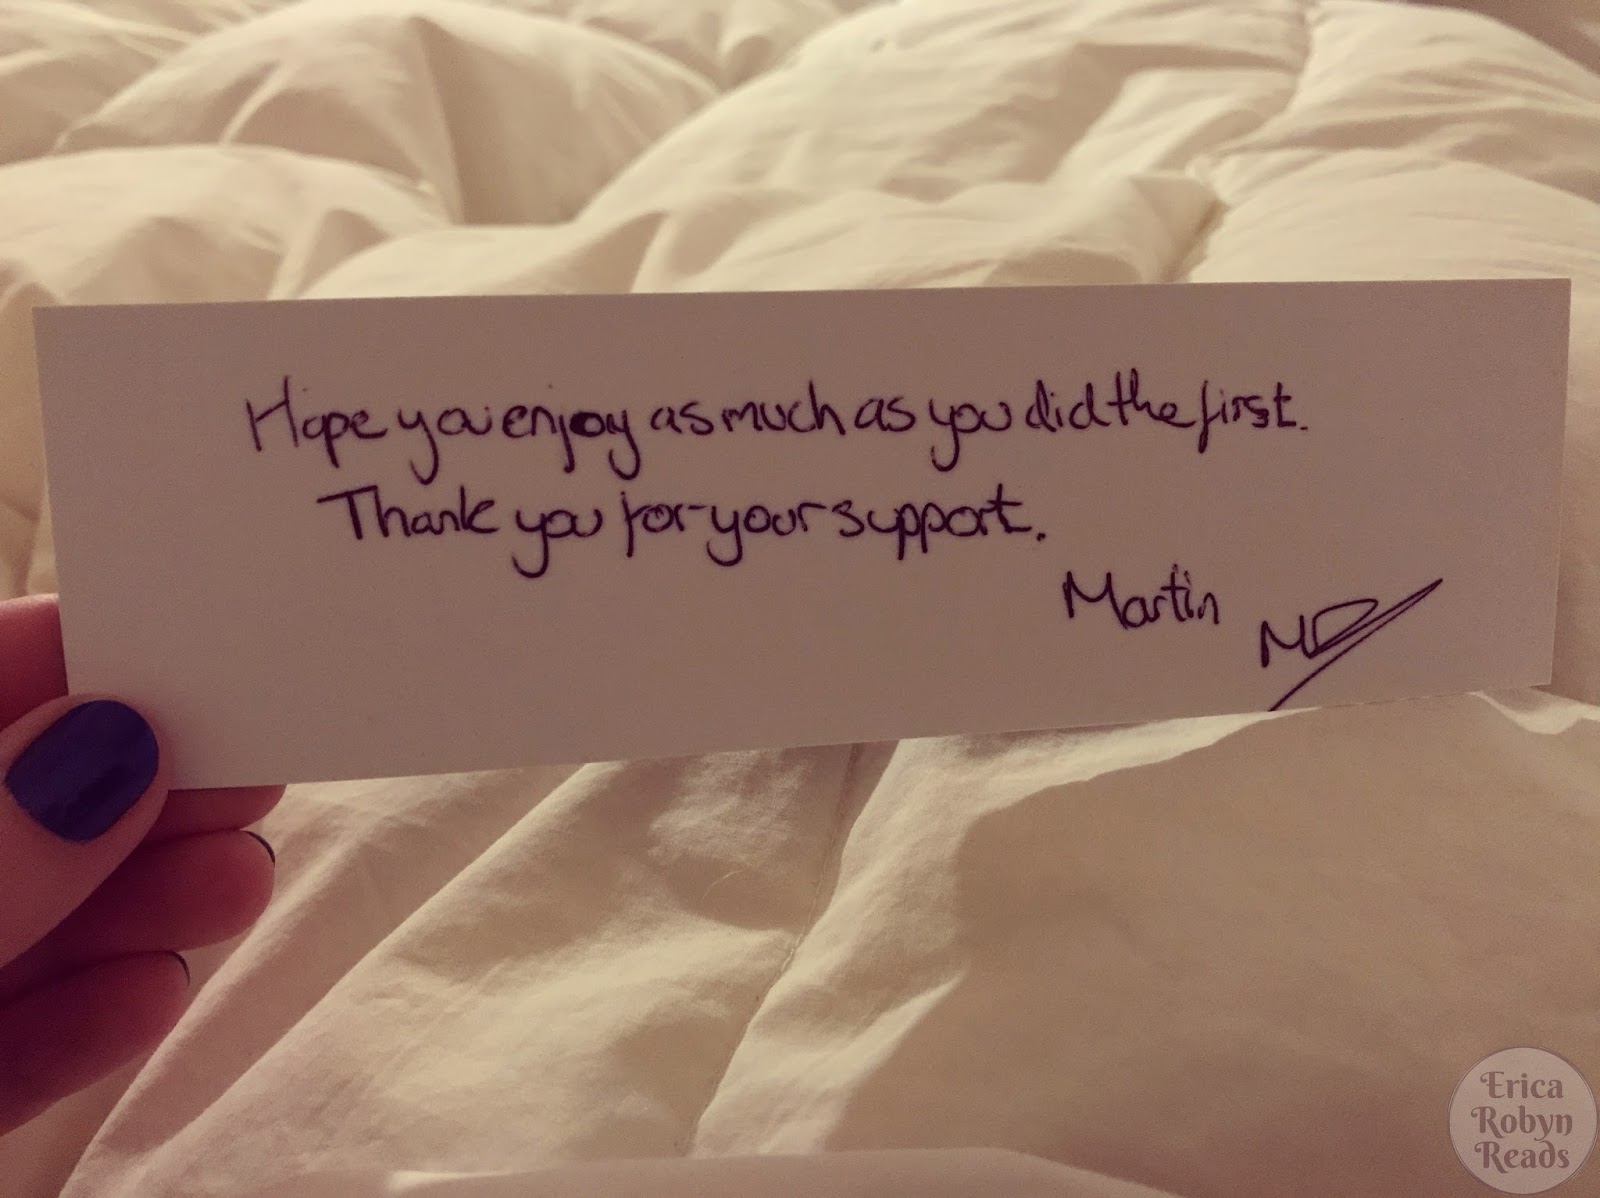 Hope you enjoy as much as you did the first.
Thank you for your support.
Martin
MD
Erica
Robyn
Reads